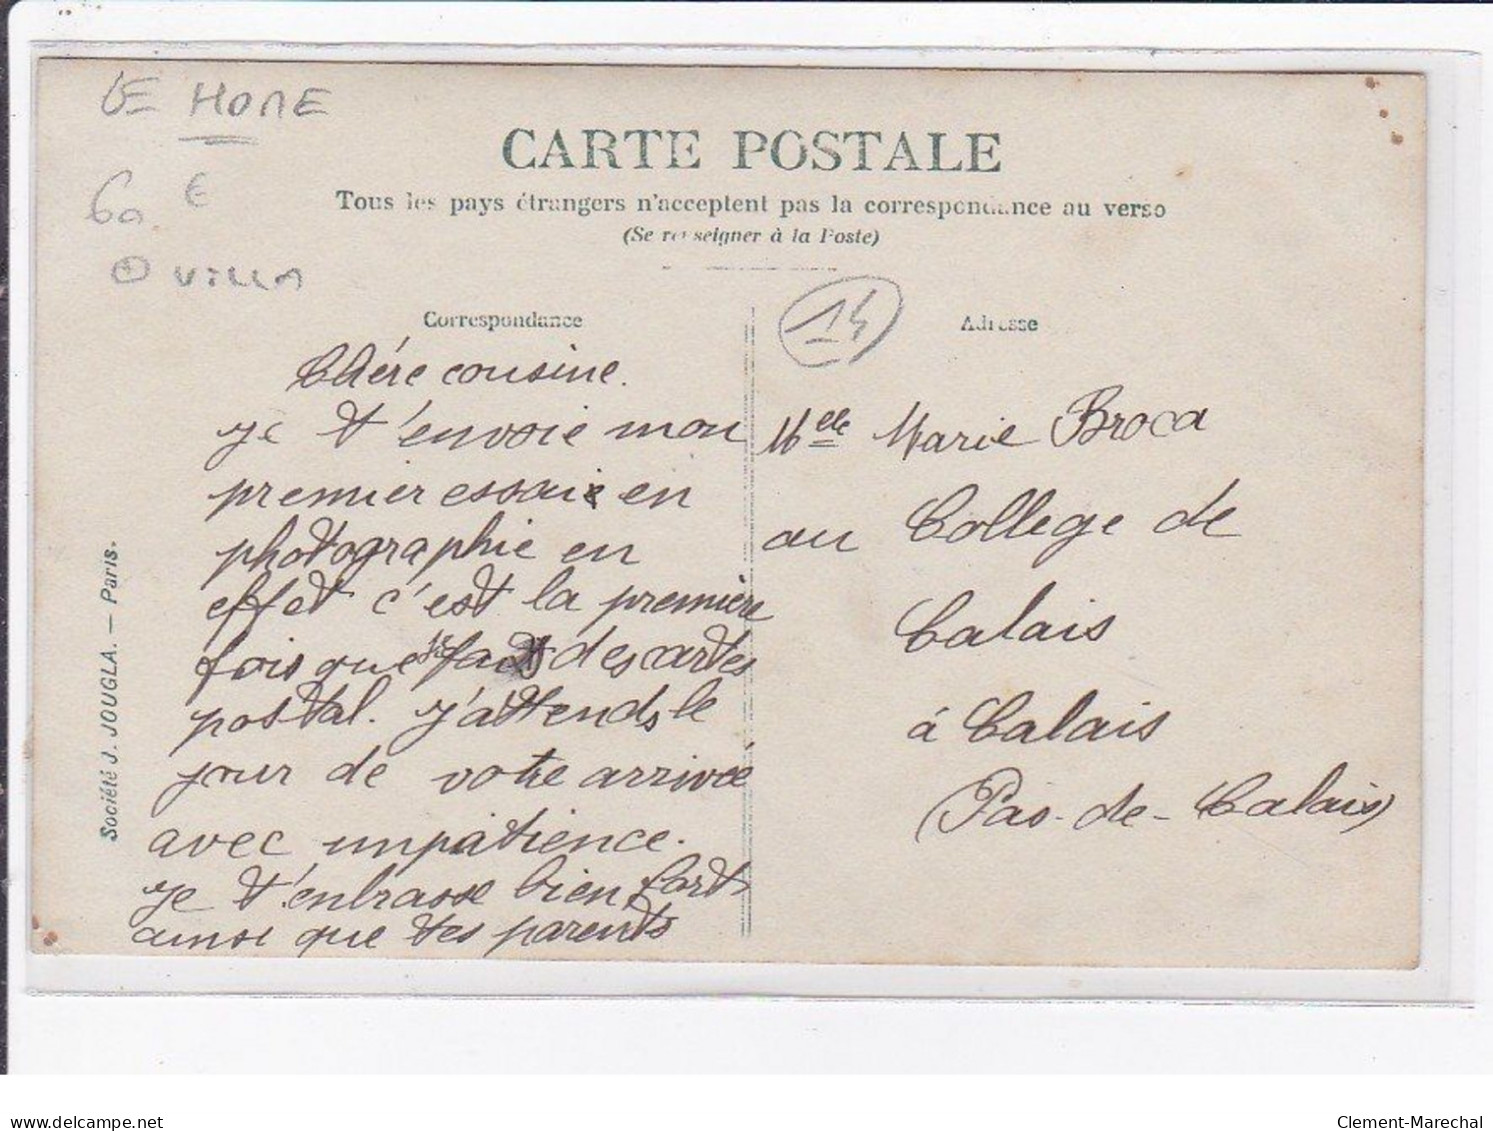 LE HOME
60 €
VILLA
CARTE POSTALE
Tous les pays étrangers n'acceptent pas la correspondance au verso
(Se renseigner à la Poste)
Correspondance
14
Adresse
Chére cousine.
je t'envoie mon
premier essai en
photographie en
effet c'est la première
fois que je fais des cartes
postal. j'attends le
jour de votre arrivée
avec impatience.
je t'enbrasse bien fort
ainsi que tes parents
Melle Marie Broca
au College de
Calais
à Calais
(Pas-de-Calais)
Société J. JOUGLA. — Paris.
delcampe.net
Clement-Marechal